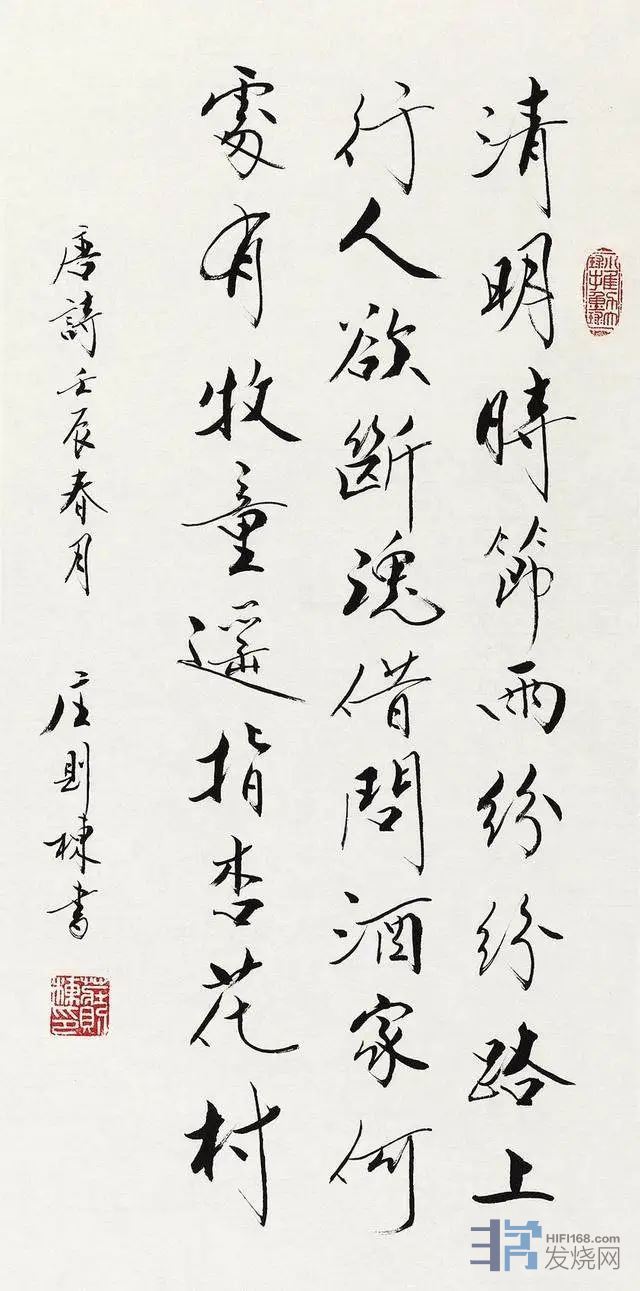 清明時節雨紛紛路上
行人欲斷魂借問酒家何
處有牧童遥指杏花村
唐詩壬辰春月 庄則棟書
莊則棟印
HIFI168.com
发烧网